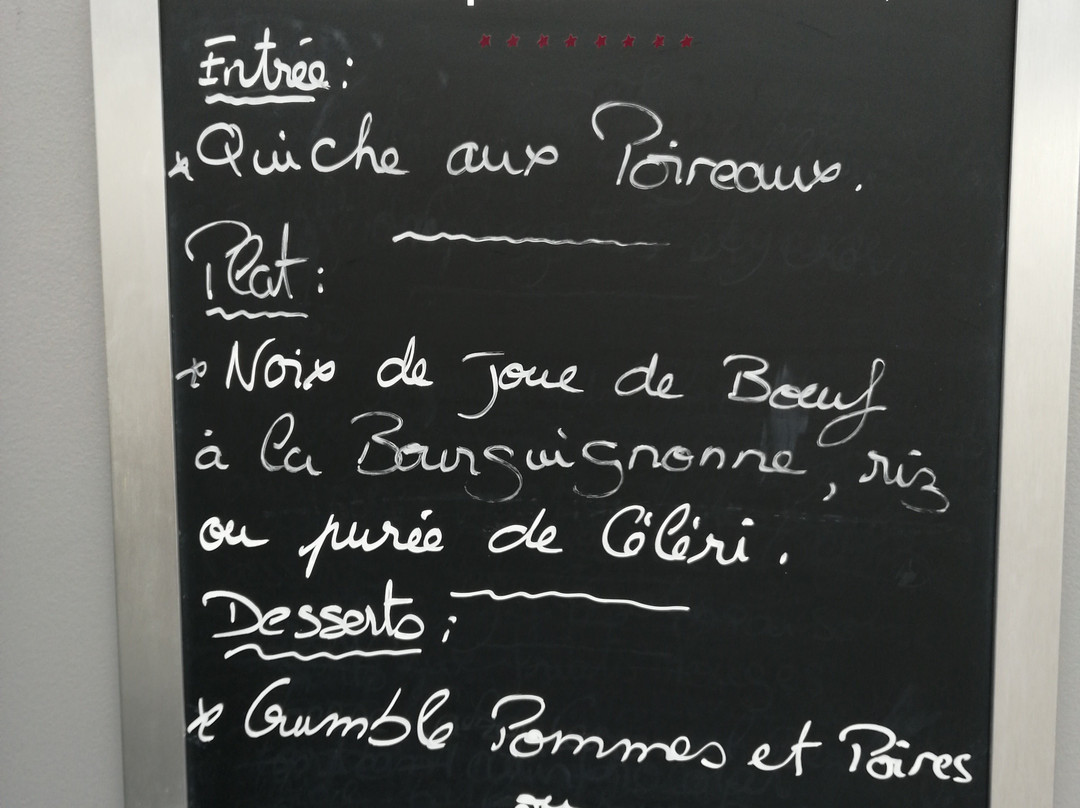 Entrée :
* Quiche aux Poireaux.
Plat :
* Noix de joue de Bœuf
à la Bourguignonne, riz
ou purée de Céléri.
Desserts :
* Crumble Pommes et Poires
ou